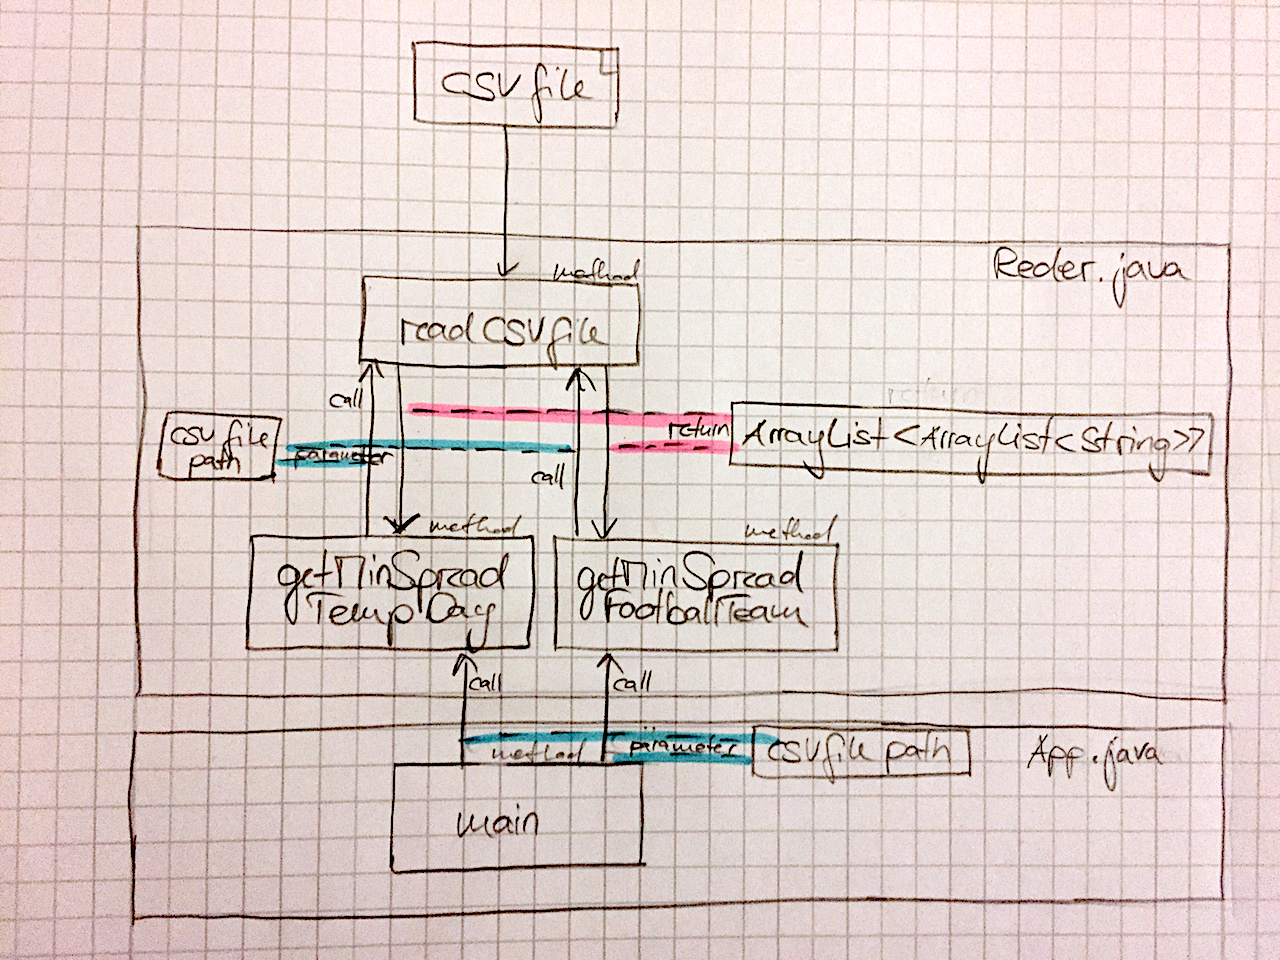 CSV file
Reder.java
method
readCSVfile
call
return
csv file
path
parameter
return
ArrayList<ArrayList<String>>
call
method
method
getMinSpread
TempDay
getMinSpread
FootballTeam
call
call
method
parameter
csvfile path
App.java
main